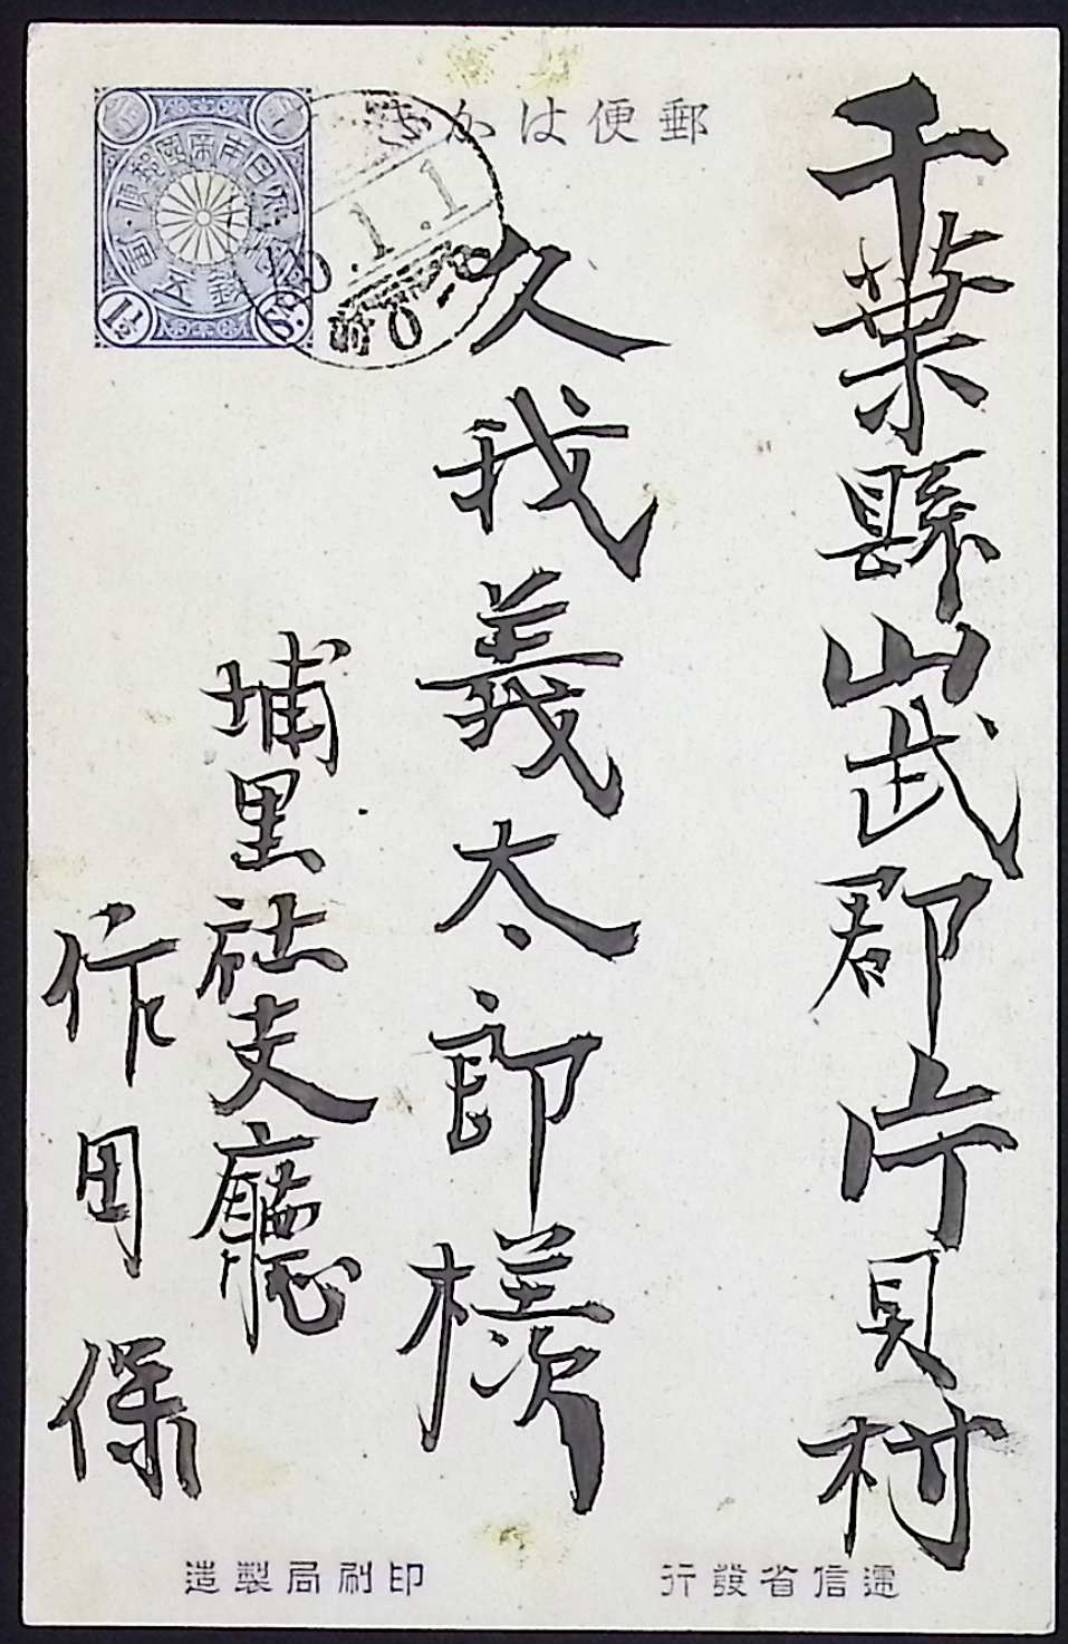 郵便はかき
大日本帝國郵便
壹錢五厘
1½ Sn.
1.1
前0-
千葉縣山武郡片貝村
久我義太郎様
埔里社支廳
作田保
逓信省發行
印刷局製造